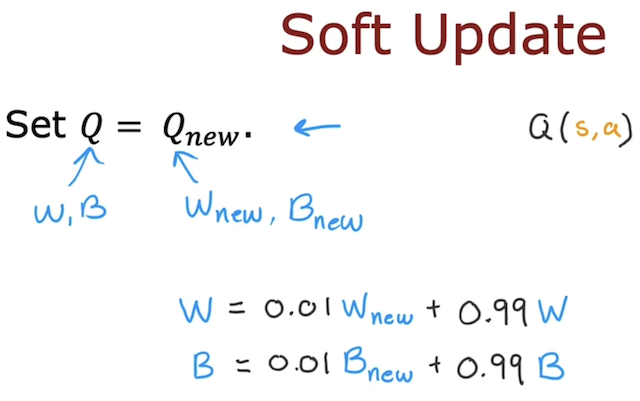 Soft Update
Set Q = Qnew. ← Q(s,a)
W, B Wnew, Bnew
W = 0.01 Wnew + 0.99 W
B = 0.01 Bnew + 0.99 B